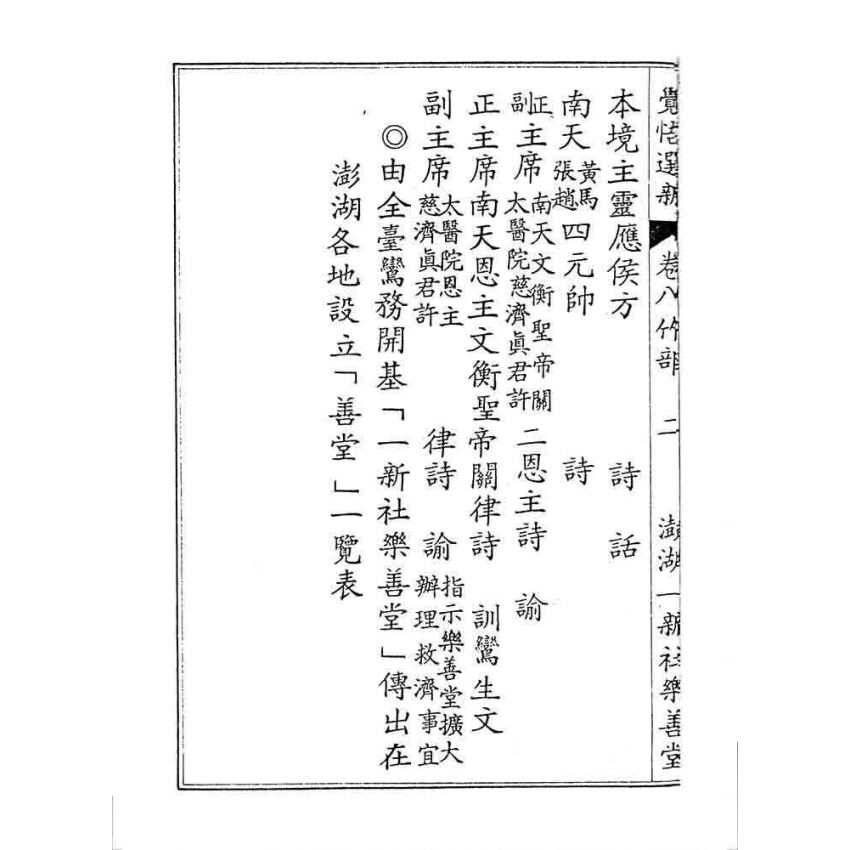 覺悟選新 卷八 竹部 二 澎湖一新社樂善堂
本境主靈應侯方 詩 話
南天黃馬張趙四元帥 詩
正副主席南天文衡聖帝關太醫院慈濟眞君許二恩主詩 諭
正主席南天恩主文衡聖帝關律詩 訓鸞生文
副主席太醫院恩主慈濟眞君許 律詩 諭指示樂善堂擴大辦理救濟事宜
◎由全臺鸞務開基「一新社樂善堂」傳出在
澎湖各地設立「善堂」一覽表